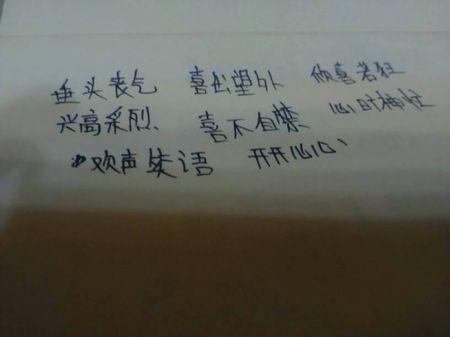 垂头丧气 喜出望外 欣喜若狂
兴高采烈、 喜不自禁 心旷神怡
欢声笑语 开开心心、